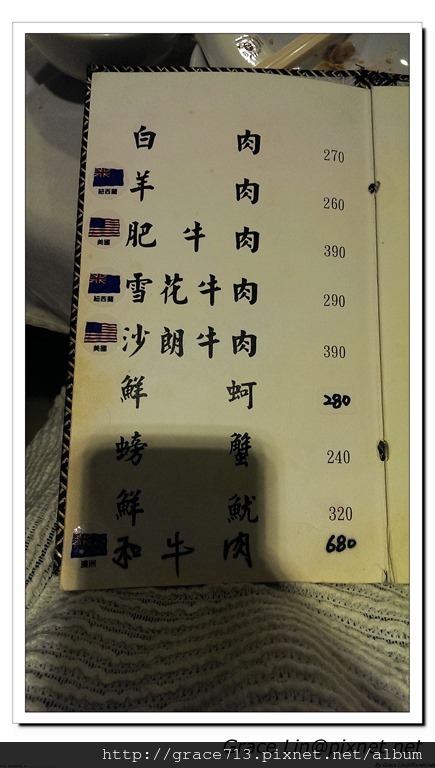 白肉 270
紐西蘭 羊肉 260
美國 肥牛肉 390
紐西蘭 雪花牛肉 290
美國 沙朗牛肉 390
鮮蚵 280
螃蟹 240
鮮魷 320
澳洲 和牛肉 680
Grace Lin@pixnet.net
http://grace713.pixnet.net/album